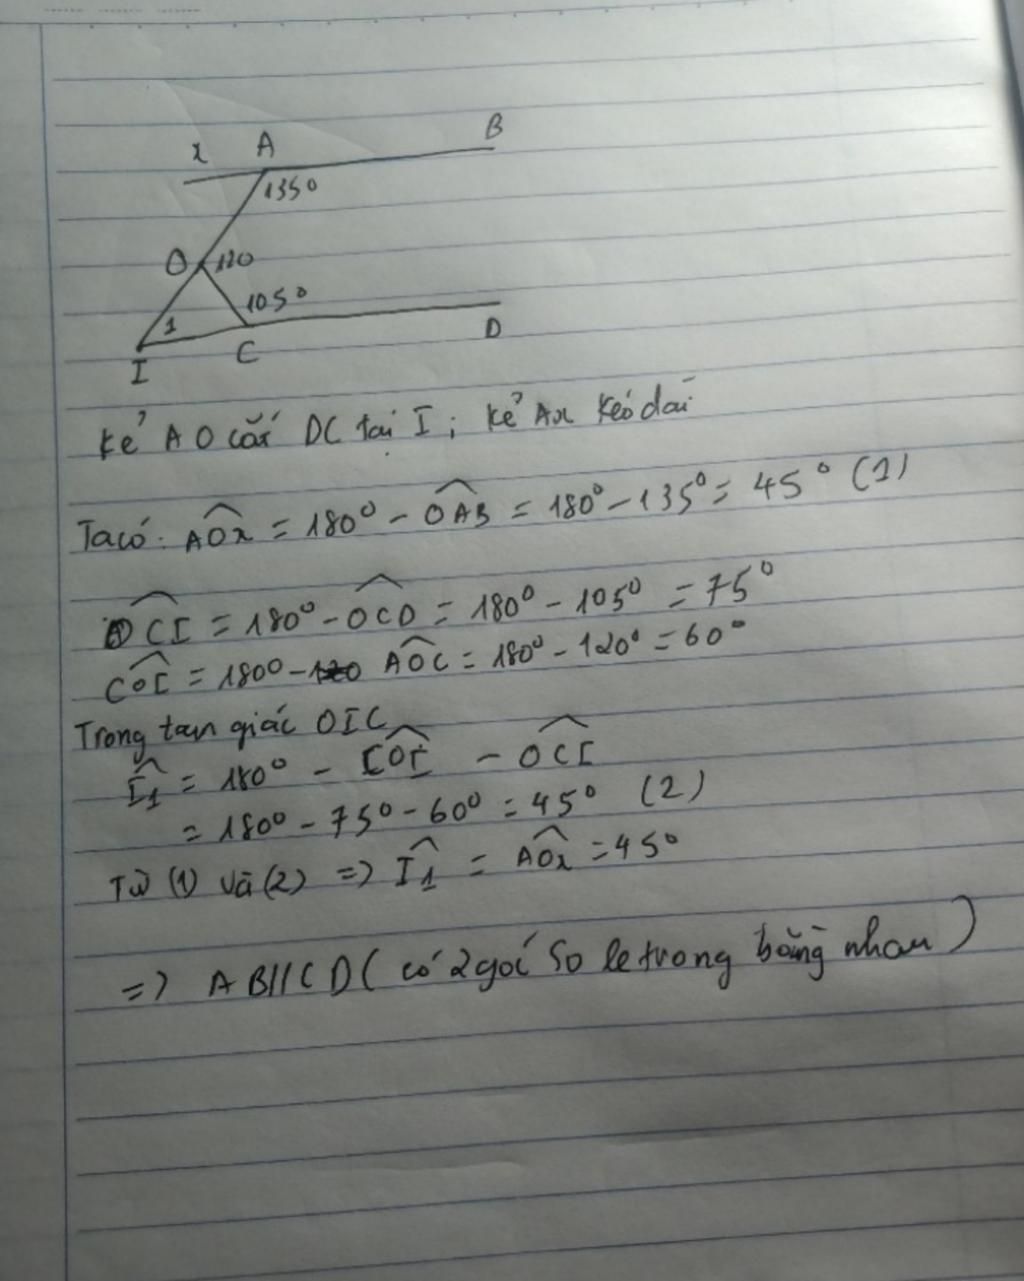 x A B
135°
O 120
105°
1
I C D
Kẻ AO cắt DC tại I ; kẻ Ax kéo dài
Ta có: AOx = 180° - OAB = 180° - 135° = 45° (1)
OCI = 180° - OCD = 180° - 105° = 75°
COI = 180° - AOC = 180° - 120° = 60°
Trong tam giác OIC
I1 = 180° - COI - OCI
= 180° - 75° - 60° = 45° (2)
Từ (1) và (2) => I1 = AOx = 45°
=> AB//CD ( có 2 góc so le trong bằng nhau )